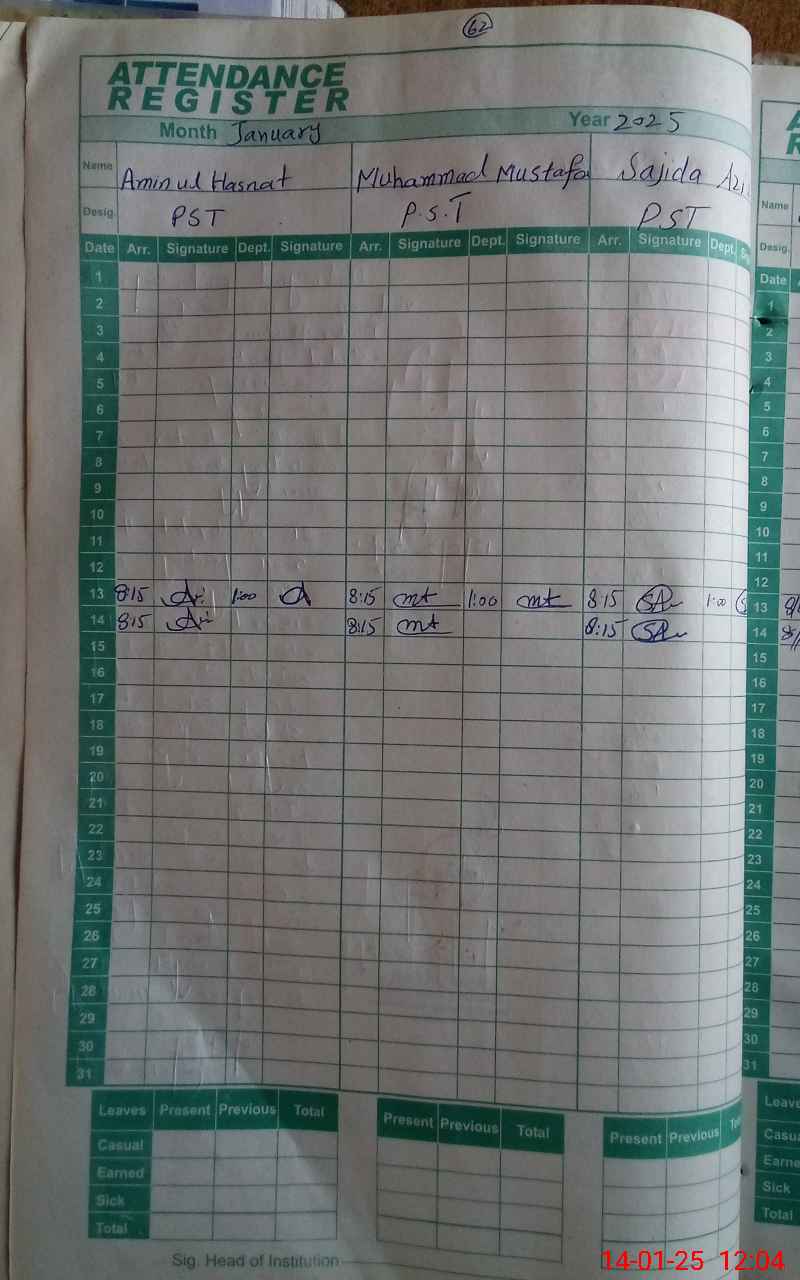 62
ATTENDANCE
REGISTER
Month January Year 2025
Name Aminul Hasnat Muhammad Mustafa Sajida Azi
Desig. PST P.S.T PST
Date Arr. Signature Dept. Signature Arr. Signature Dept. Signature Arr. Signature Dept.
1
2
3
4
5
6
7
8
9
10
11
12
13 8:15 1:00 8:15 mt 1:00 mt 8:15 SA 1:00
14 8:15 8:15 mt 8:15 SA
15
16
17
18
19
20
21
22
23
24
25
26
27
28
29
30
31
Leaves Present Previous Total Present Previous Total Present Previous
Casual
Earned
Sick
Total
Sig. Head of Institution
Name
Desig.
Date
1
2
3
4
5
6
7
8
9
10
11
12
13
14
15
16
17
18
19
20
21
22
23
24
25
26
27
28
29
30
31
Leave
Casu
Earne
Sick
Total
14-01-25 12:04